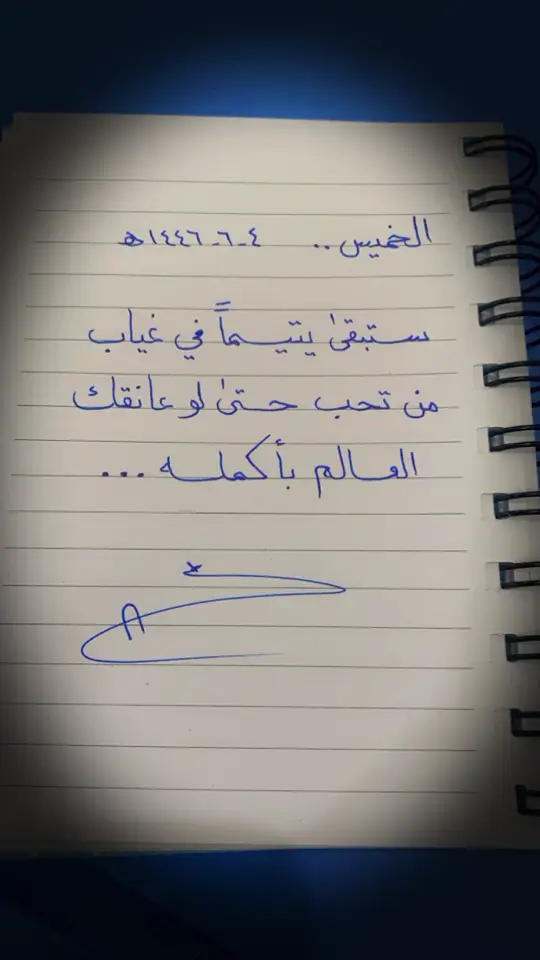 الخميس .. ٤-٦-١٤٤٦ه
ستبقىٰ يتيـماً في غياب
من تحب حتىٰ لو عانقك
العالم بأكمله ...